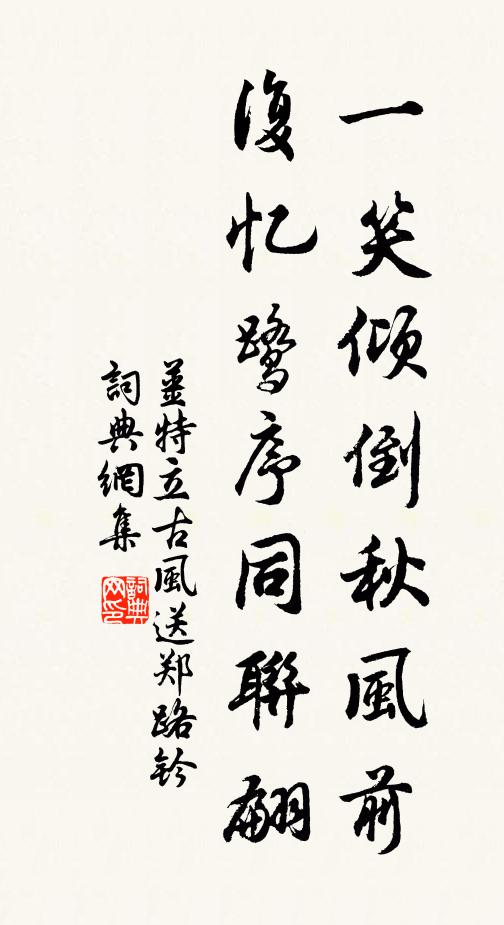 一笑倾倒秋風前
復忆鹭序同聯翩
姜特立古風送郑路钤
詞典網集